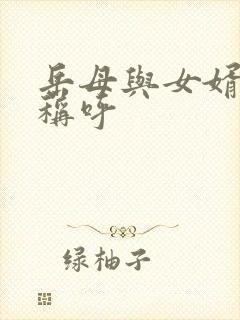 岳母與女婿
稱呼
绿柚子